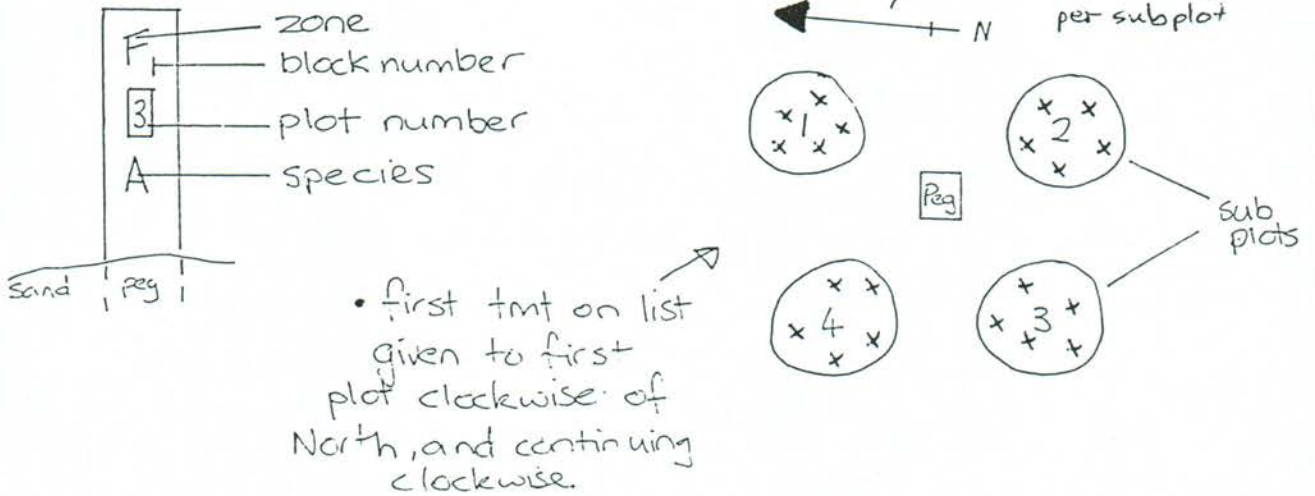 F
1
3
A
zone
block number
plot number
species
sand
peg
N
per subplot
1
2
Peg
4
3
sub
plots
• first tmt on list
given to first
plot clockwise of
North, and continuing
clockwise.